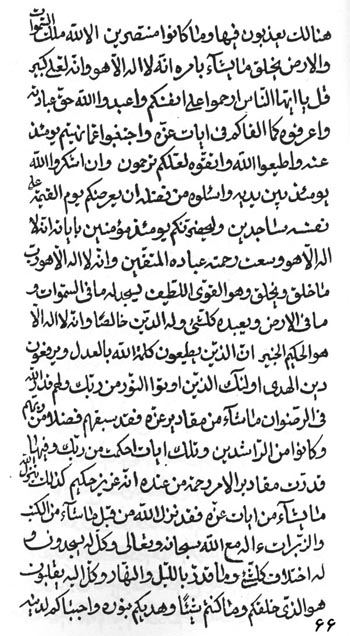 هنالك يعذبون فيها وما كانوا منتصرين الا لله ملك السموات
والارض يخلق ما يشآء بامره انه لا اله الا هو وانه لعلى كبير
قل يا ايها الناس ارحموا على انفسكم واعبدوا الله حق عبادته
واعرفوه كما القاكم فى ايات عزه واجتنبوا عما نهيتم يومئذ
عنه واطيعوا الله واتقوه لعلكم ترحمون وان اشكروا الله
يومئذ بين يديه واسئلوه من فضله ان يعرضكم يوم القيمة على
نفسه ساجدين وليحضرنكم يومئذ مؤمنين بايات انه لا
اله الا هو وسعت رحمته عباده المتقين وانه لا اله الا هو رب
ما خلق ويخلق وهو القوى اللطيف ليسجد له ما فى السموات و
ما فى الارض ويعبده كلشئى وله الدين خالصا وانه لا اله الا
هو الحكيم الخبير ان الذين يطيعون كلمة الله بالعدل ويرفعون
دين الهدى اولئك الذين اوتوا النور من ربك ولهم قدر الله
فى الرضوان ما شآء من مقادير عزه فقد سبقهم فضلا من ربهم
وكانوا من الراشدين وتلك ايات احكمت من ربك وفيها
قدرت مقادير الامر رحمة من عنده انه عزيز حكيم كذلك ينزل الله
ما يشآء من ايات عزه فقد نزل الله من قبل ما شآء من الكتب
والزبرات ءاله مع الله سبحانه وتعالى وكل له يسجدون و
له اختلاف كلشئ وما قد ذ بالليل والنهار وكل اليه يقلبون
هو الذى خلقكم وما كنتم شيئا وهديكم بنوره واجتباكم لدينه
۶۶